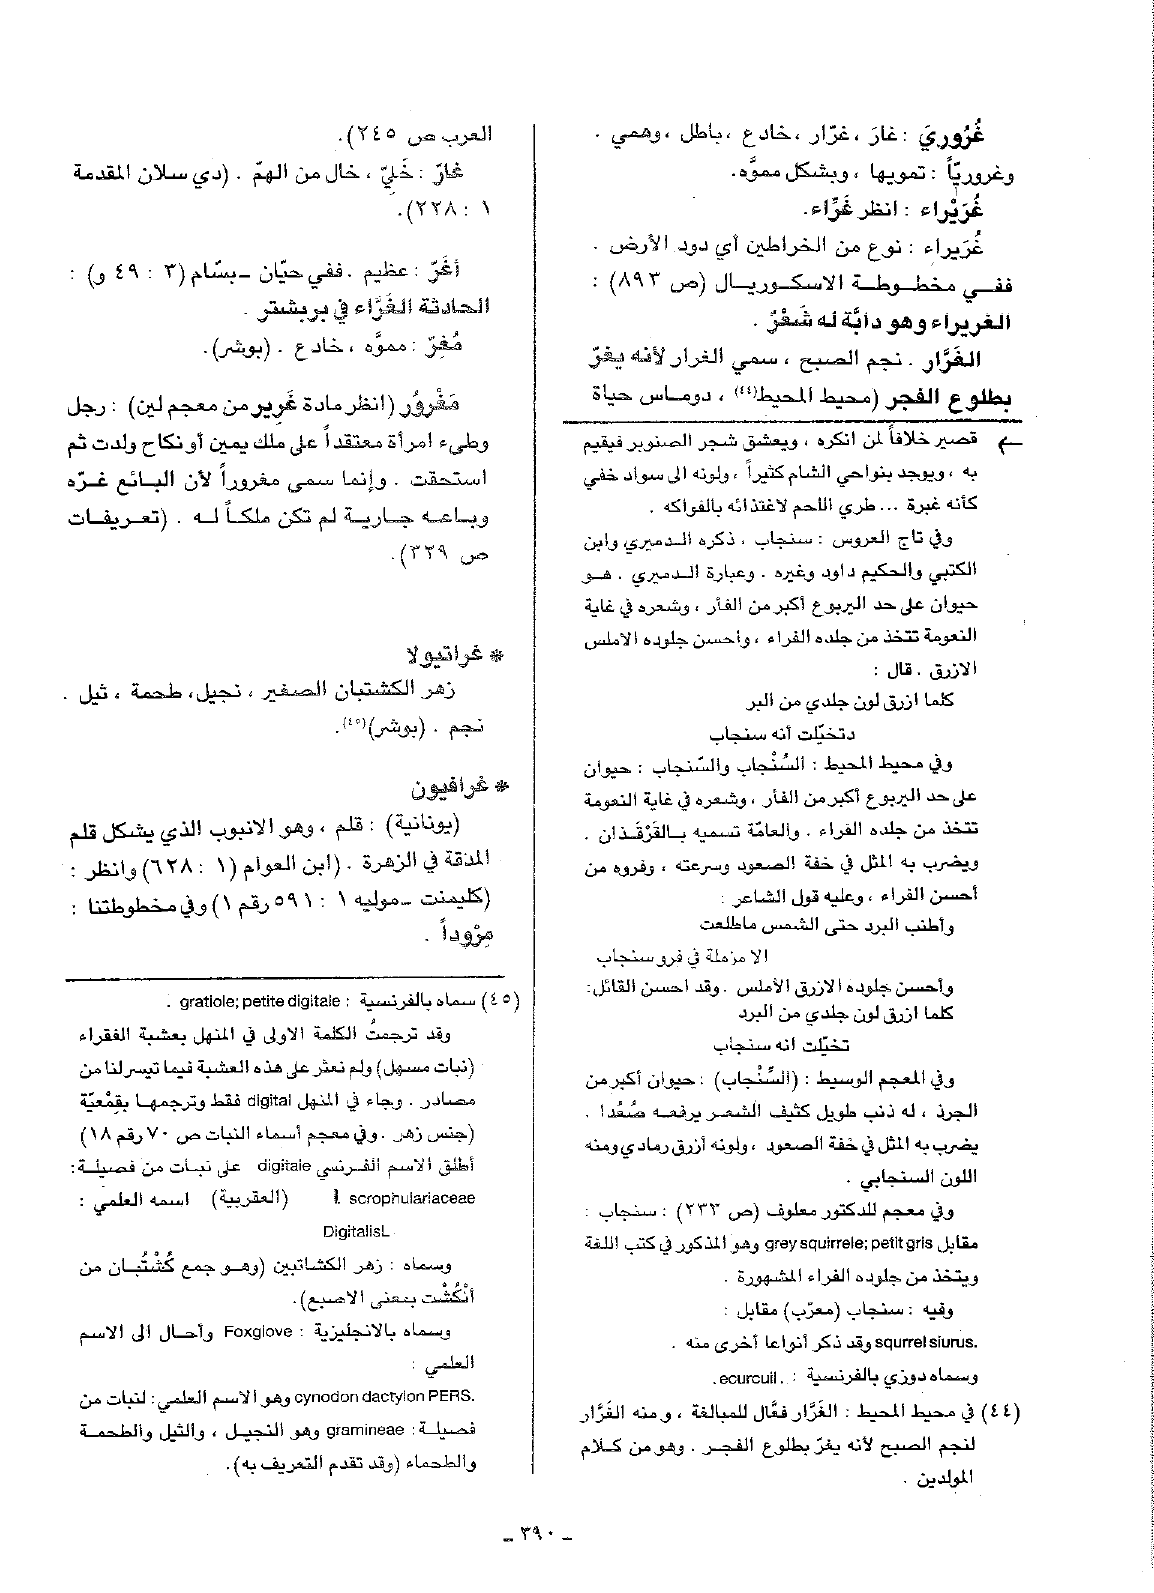 غُرُوريّ : غارَ ، غرّار ، خادع ، باطل ، وهمي .
وغروريّاً : تمويها ، وبشكل مموَّه.
غُرَيْراء : انظر غَرَّاء.
غُرَيراء : نوع من الخراطين أي دود الأرض .
ففي مخطوطة الاسكوريال (ص ٨٩٣) :
الغريراء وهو دابَّة له شَفْرٌ .
الغَرَّار . نجم الصبح ، سمي الغرار لأنه يغرّ
بطلوع الفجر (محيط المحيط(٤٤) ، دوماس حياة
قصير خلافاً لمن انكره ، ويعشق شجر الصنوبر فيقيم
به ، ويوجد بنواحي الشام كثيراً ، ولونه الى سواد خفي
كأنه غبرة ... طري اللحم لاغتذائه بالفواكه .
وفي تاج العروس : سنجاب ، ذكره الدميري وابن
الكتبي والحكيم داود وغيره . وعبارة الدميري . هو
حيوان على حد اليربوع أكبر من الفأر ، وشعره في غاية
النعومة تتخذ من جلده الفراء ، وأحسن جلوده الاملس
الازرق . قال :
كلما ازرق لون جلدي من البر
دتخيّلت أنه سنجاب
وفي محيط المحيط : السُّنْجاب والسَّنجاب : حيوان
على حد اليربوع أكبر من الفأر ، وشعره في غاية النعومة
تتخذ من جلده الفراء . والعامّة تسميه بالقَرْقَذان .
ويضرب به المثل في خفة الصعود وسرعته ، وفروه من
أحسن الفراء ، وعليه قول الشاعر :
وأطنب البرد حتى الشمس ماطلعت
الا مزملة في فرو سنجاب
وأحسن جلوده الازرق الأملس . وقد احسن القائل:
كلما ازرق لون جلدي من البرد
تخيّلت انه سنجاب
وفي المعجم الوسيط : (السِّنْجاب) : حيوان أكبر من
الجرذ ، له ذنب طويل كثيف الشعر يرفعه صُعُدا .
يضرب به المثل في خفة الصعود ، ولونه أزرق رمادي ومنه
اللون السنجابي .
وفي معجم للدكتور معلوف (ص ٢٣٣) : سنجاب :
مقابل grey squirrele; petit gris وهو المذكور في كتب اللغة
ويتخذ من جلوده الفراء المشهورة .
وفيه : سنجاب (معرّب) مقابل :
squrrel siurus. وقد ذكر أنواعا أخرى منه .
وسماه دوزي بالفرنسية : ecurcuil. .
(٤٤) في محيط المحيط : الغَرَّار فعَّال للمبالغة ، ومنه الغَرَّار
لنجم الصبح لأنه يغرّ بطلوع الفجر . وهو من كلام
المولدين .
العرب ص ٢٤٥).
غارّ : خَلِيّ ، خال من الهمّ . (دي سلان المقدمة
١ : ٢٢٨).
أغَرّ : عظيم . ففي حيّان ـ بسّام (٣ : ٤٩ و) :
الحادثة الغَرَّاء في بربشتر .
مُغِرّ : مموَّه ، خادع . (بوشر).
مَغْرُوُر (انظر مادة غَرِير من معجم لين) : رجل
وطيء امرأة معتقداً على ملك يمين أو نكاح ولدت ثم
استحقت . وإنما سمي مغروراً لأن البائع غرّه
وباعه جارية لم تكن ملكاً له . (تعريفات
ص ٣٢٩).
* غراتيولا
زهر الكشتبان الصغير ، نجيل، طحمة ، ثيل .
نجم . (بوشر)(٤٥).
* غرافيون
(يونانية) : قلم ، وهو الانبوب الذي يشكل قلم
المدقة في الزهرة . (ابن العوام (١ : ٦٢٨) وانظر :
(كليمنت ـ موليه ١ : ٥٩١ رقم ١) وفي مخطوطتنا :
مِرْوداً .
(٤٥) سماه بالفرنسية : gratiole; petite digitale .
وقد ترجمتُ الكلمة الاولى في المنهل بعشبة الفقراء
(نبات مسهل) ولم نعثر على هذه العشبة فيما تيسر لنا من
مصادر . وجاء في المنهل digital فقط وترجمها بقمْعيّة
(جنس زهر . وفي معجم أسماء النبات ص ٧٠ رقم ١٨)
أطلق الاسم الفرنسي digitale على نبات من فصيلة:
scrophulariaceae (العقربية) اسمه العلمي :
DigitalisL
وسماه : زهر الكشاتبين (وهو جمع كُشْتُبان من
أنْكُشْت بمعنى الاصبع).
وسماه بالانجليزية : Foxglove وأحال الى الاسم
العلمي :
cynodon dactylon PERS. وهو الاسم العلمي : لنبات من
فصيلة : gramineae وهو النجيل ، والثيل والطحمة
والطحماء (وقد تقدم التعريف به).
ـ ٣٩٠ ـ